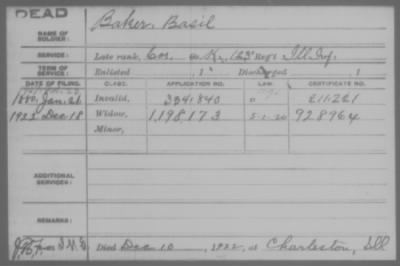 DEAD
NAME OF SOLDIER: Baker, Basil
SERVICE: Late rank, Co. K, 123 Reg't Ill Inf.
TERM OF SERVICE: Enlisted , 1 Discharged , 1
DATE OF FILING. CLASS. APPLICATION NO. LAW. CERTIFICATE NO.
Jan. 26 Invalid, 611261
1923 Dec 18 Widow, 1,198,173 5-1-20 928964
Minor,
ADDITIONAL SERVICES:
REMARKS:
Died Dec 10, 1922, at Charleston, Ill